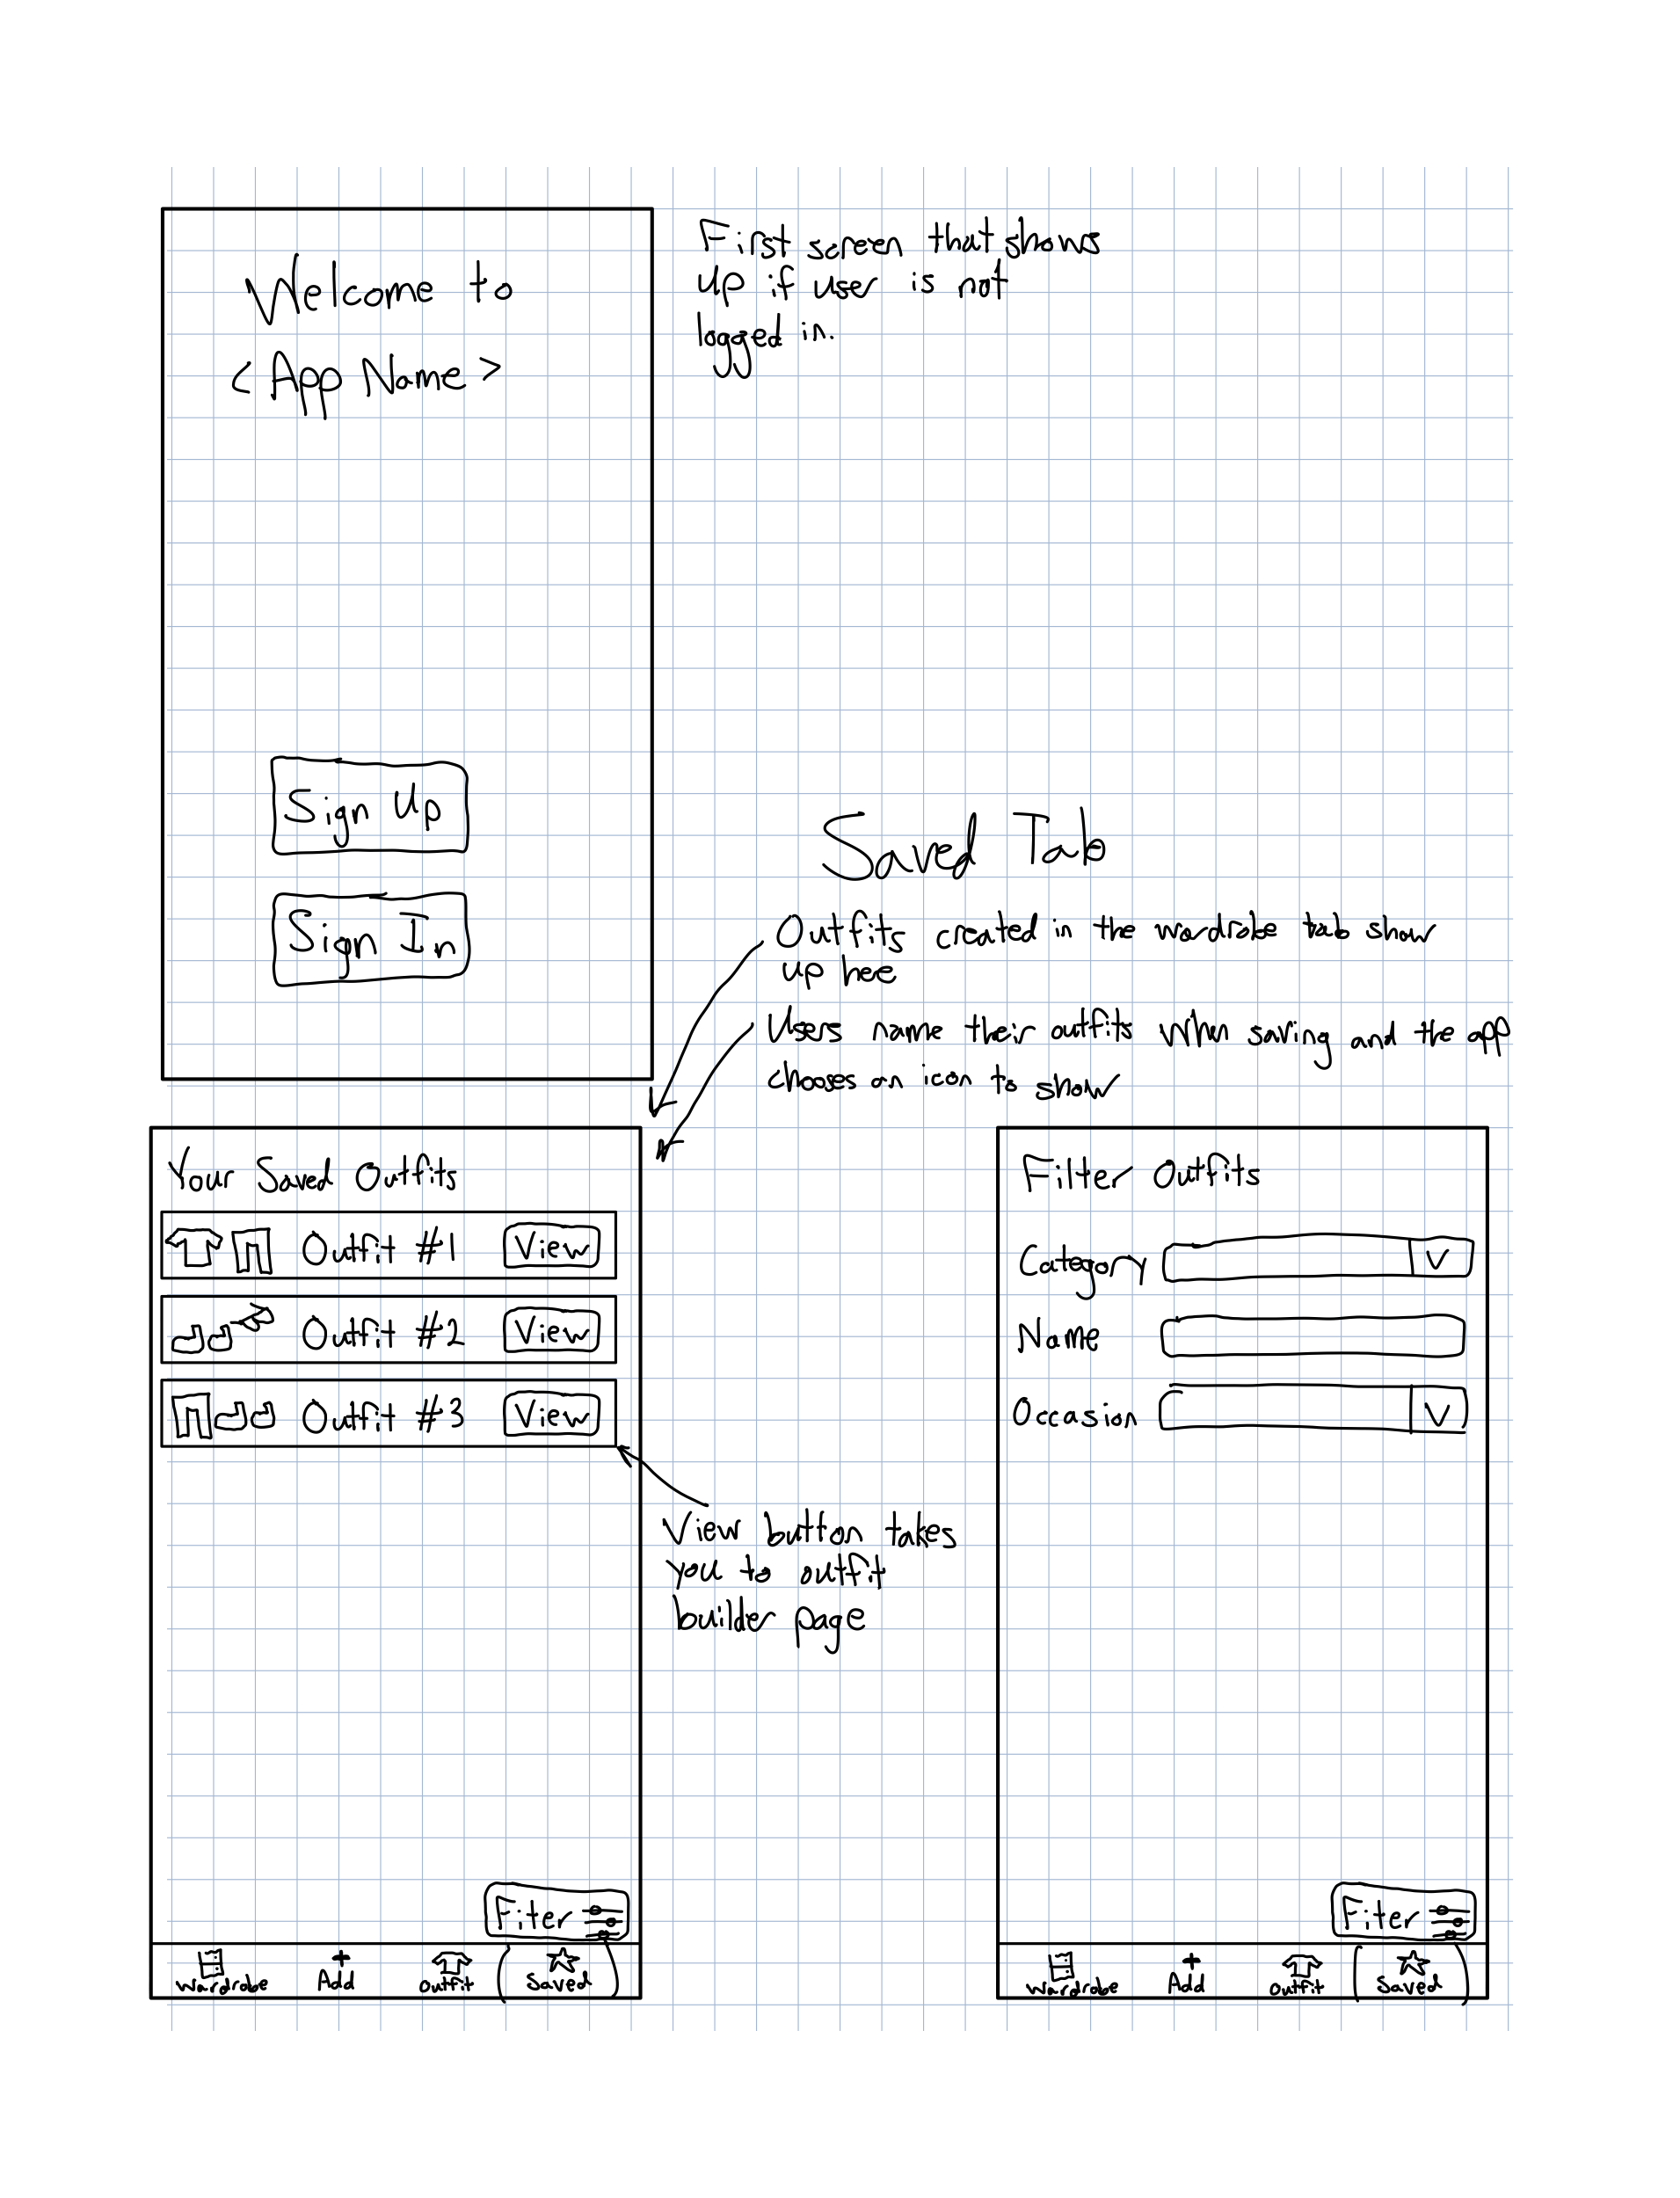 Welcome to
<App Name>
Sign Up
Sign In
First screen that shows
up if user is not
logged in.
Saved Tab
Outfits created in the wardrobe tab show
up hee
Users name their outfits when saving and the app
chooses an icon to show
Your Saved Outfits
Outfit #1 View
Outfit #2 View
Outfit #3 View
View button takes
you to outfit
builder page
Fiter
Wardrobe Add Outfit Saved
Filter Outfits
Category V
Name
Occasion V
Filter
Wardrobe Add Outfit Saved